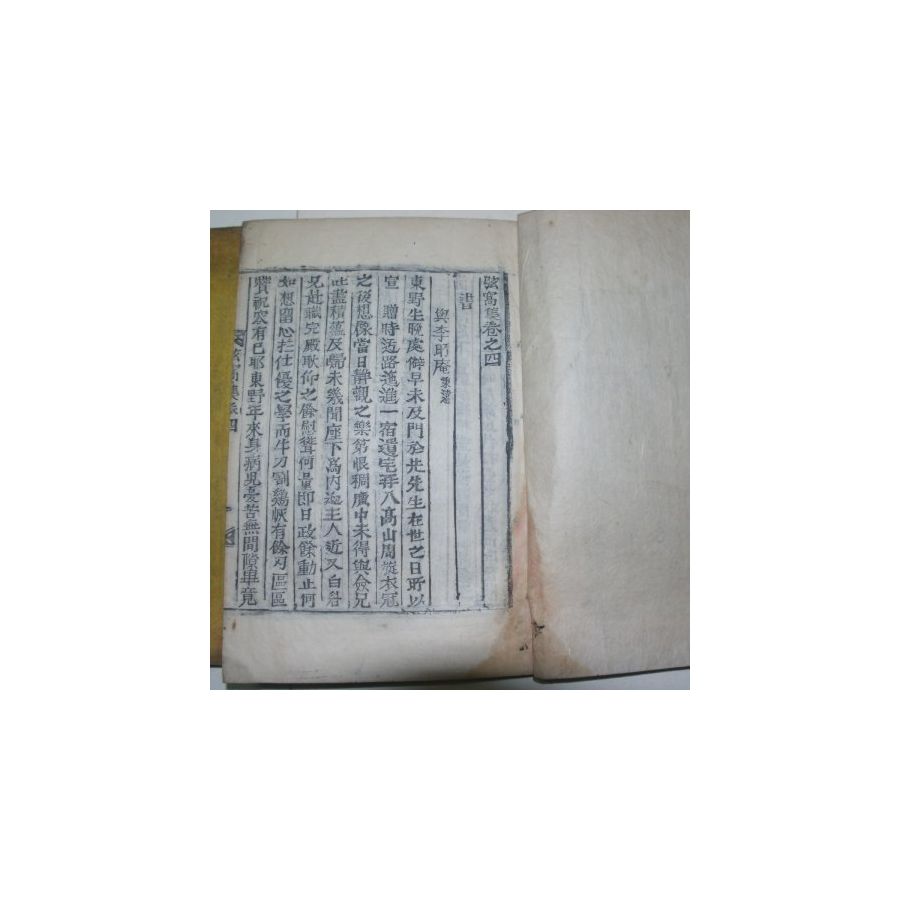 弦窩集卷之四
書
與李 庵
東野生晚處僻早未及門於先先生在世之日所以
宣 時 路 進一宿遺宅 八高山周旋衣冠
之後想像當日靜觀之樂第眼稠廣中未得與僉兄
吐盡積蘊及歸未幾聞座下爲內 主人近又自
兄赴職完殿耿仰之餘慰 何量卽日政餘動止何
如想留心於仕優之學而牛刀割鷄恢有餘刃區區
賀祝容有已耶東野年來身病兒憂苦無間隙畢竟
弦窩集卷四